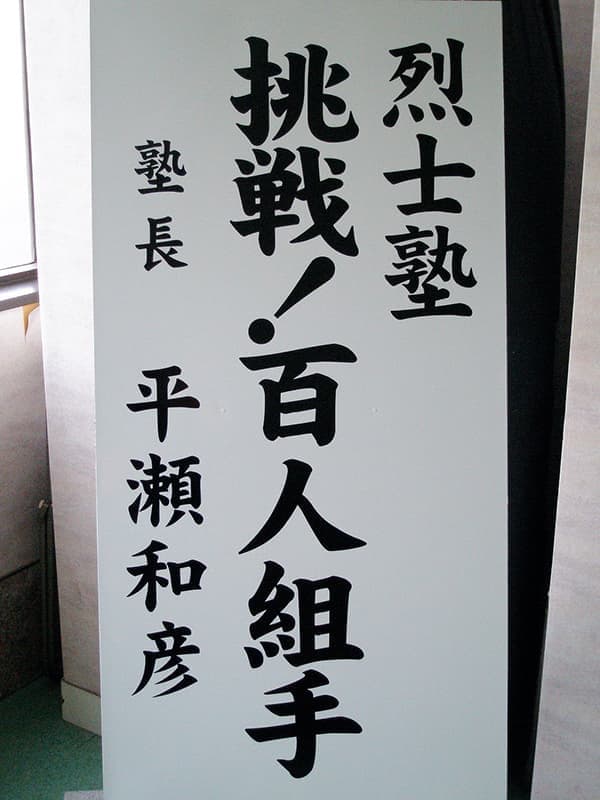 烈士塾
挑戦！百人組手
塾長 平瀬和彦